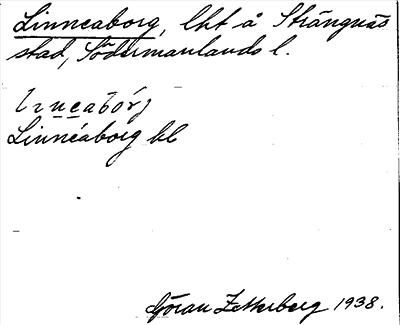 Linneaborg, lht å Strängnäs
stad, Södermanlands l.
Linnéaborg hl
Göran Zetterberg 1938.